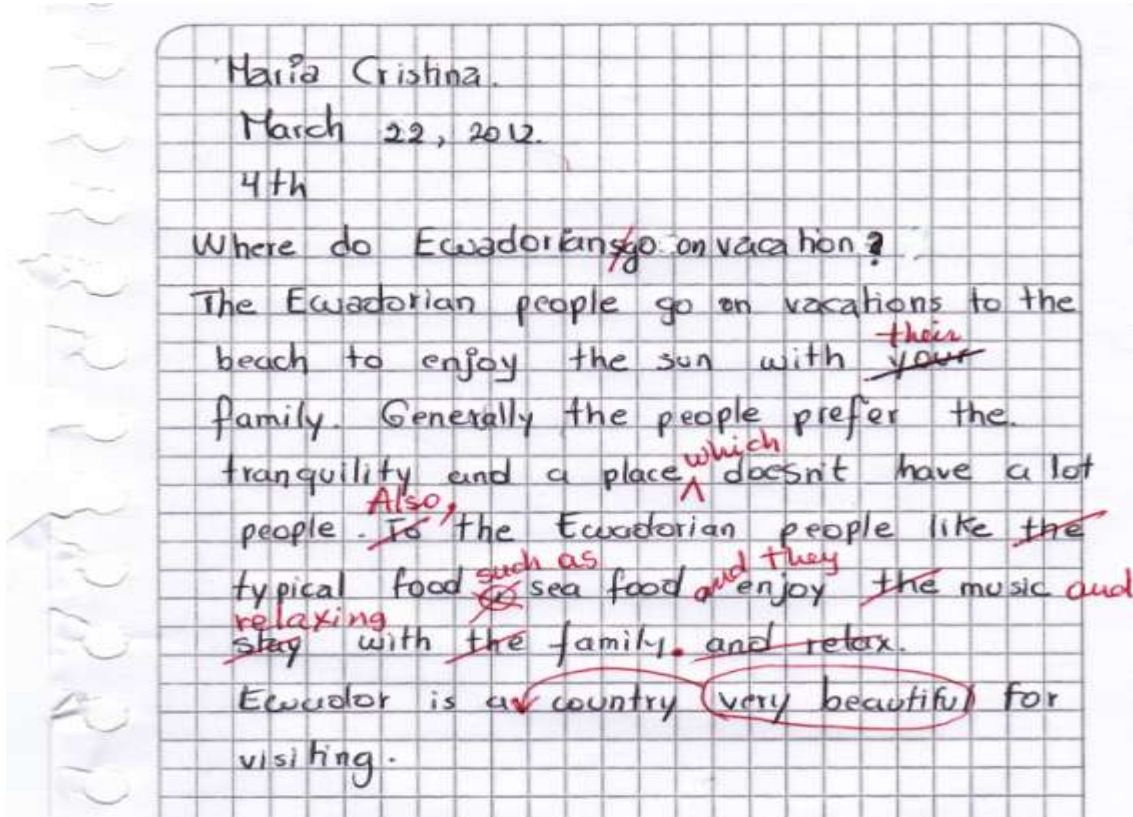 Maria Cristina.
March 22, 2012.
4th
Where do Ecuadorians go on vacation?
The Ecuadorian people go on vacations to the
their
beach to enjoy the sun with your
family. Generally the people prefer the.
which
tranquility and a place doesn't have a lot
Also,
people. To the Ecuadorian people like the
such as and they
typical food sea food enjoy the music and
relaxing
stay with the family. and relax.
Ecuador is a country very beautiful for
visiting.